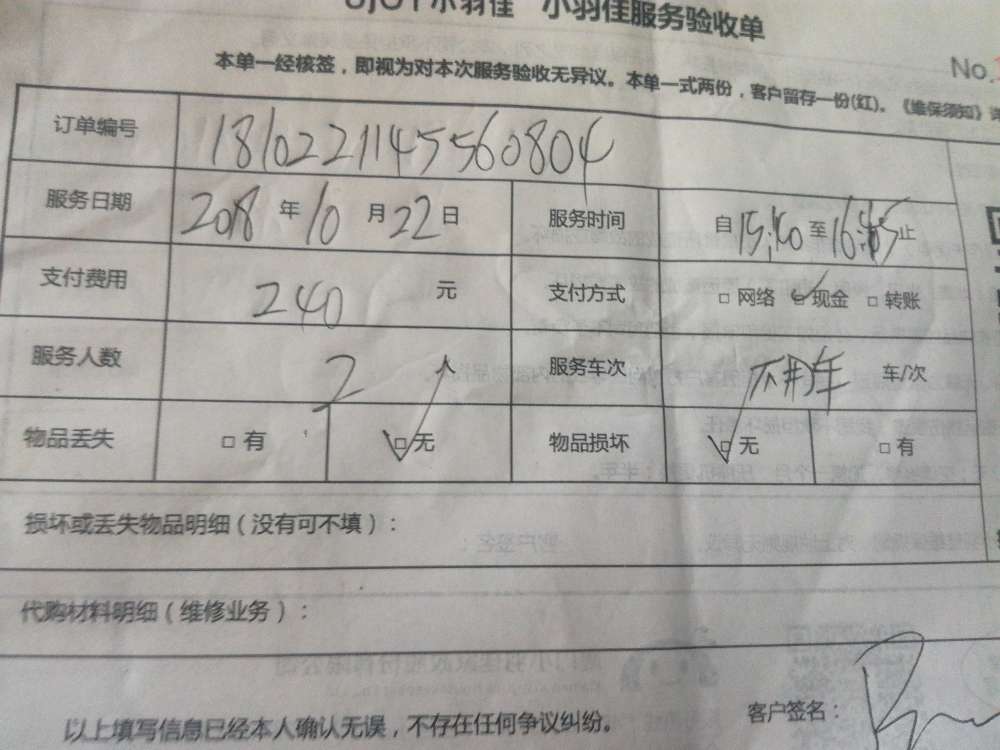 小羽佳 小羽佳服务验收单
No.
本单一经核签，即视为对本次服务验收无异议。本单一式两份，客户留存一份(红)。《维保须知》
订单编号 1810221145560804
服务日期 2018 年 10 月 22 日 服务时间 自 15:40 至 16:45 止
支付费用 240 元 支付方式 □ 网络 □ 现金 □ 转账
服务人数 2 人 服务车次 不用车 车/次
物品丢失 □ 有 □ 无 物品损坏 □ 无 □ 有
损坏或丢失物品明细（没有可不填）：
代购材料明细（维修业务）：
以上填写信息已经本人确认无误，不存在任何争议纠纷。 客户签名：